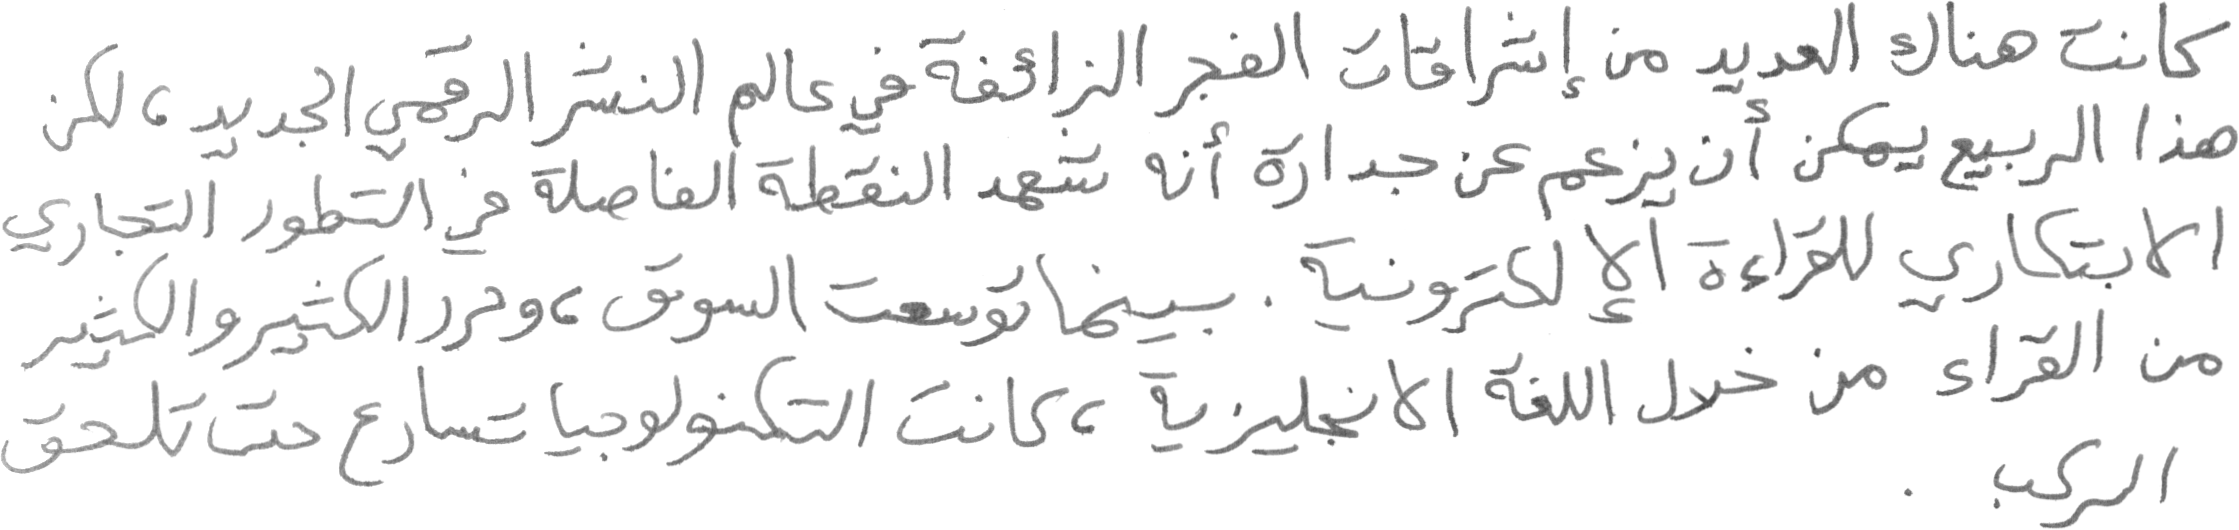 كانت هناك العديد من إشراقات الفجر الزائفة في عالم النشر الرقمي الجديد، لكن
هذا الربيع يمكن أن يزعم عن جدارة أنه شهد النقطة الفاصلة في التطور التجاري
الابتكاري للقراءة الإلكترونية. بينما توسعت السوق، وحرر الكثير والكثير
من القراء من خلال اللغة الانجليزية، كانت التكنولوجيا تسارع حتى تلحق
الركب.